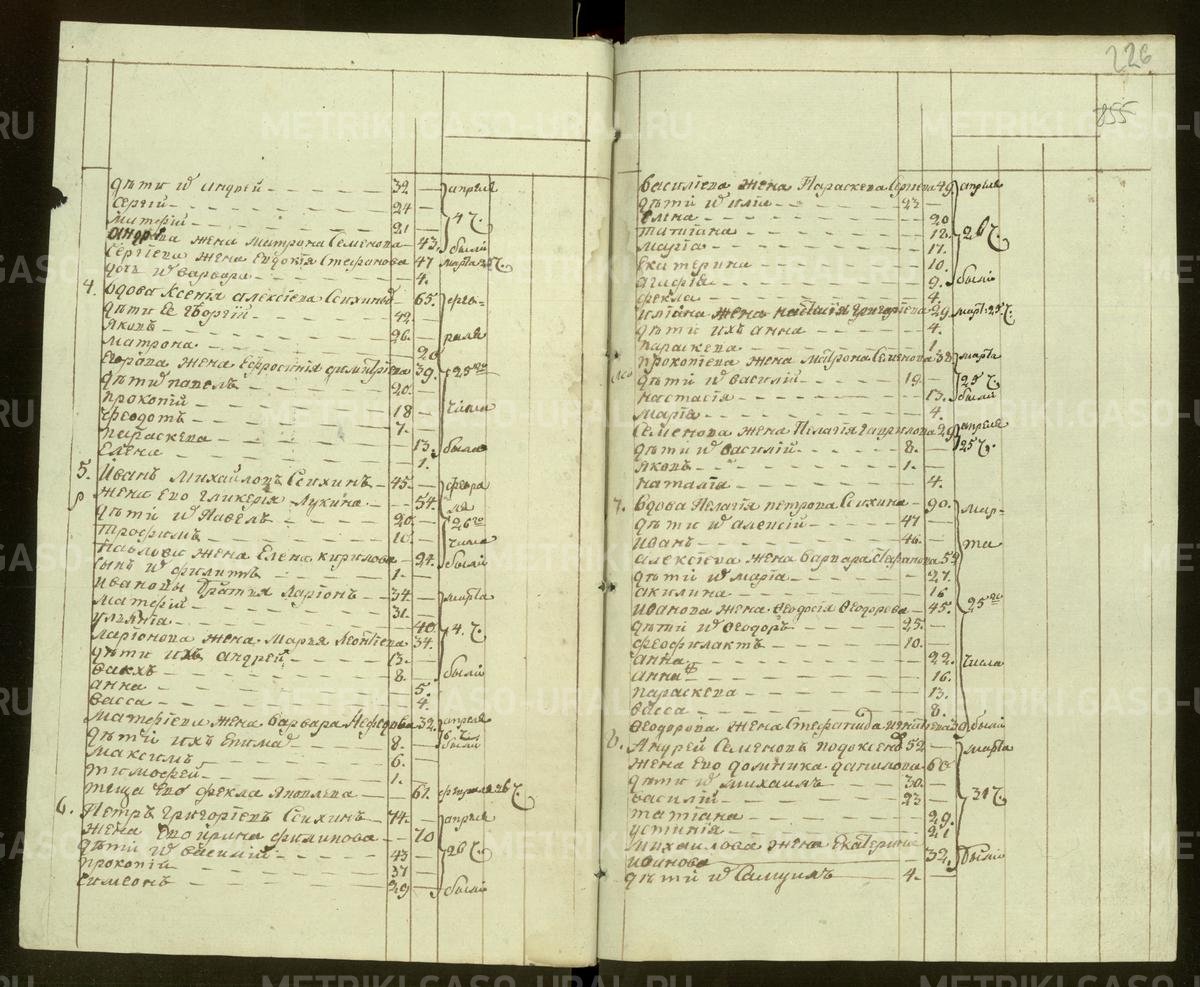 226
855
дѣти их андрей - 32 - апреля
сергiй - 24 -
матфiй - 21 4 ч.
андрѣева жена матрона Семенова - 43. были
Сергiева жена Евдокiя Стефанова 47 марта
дочь их варвара - 4.
4. вдова Ксенiя алексiева Сеихиныхъ - 65. фев-
дѣти Ее Георгiй - 42.
яковъ - 26. раля
матрона - 20
Егорова жена Ефросинiя димитрiева 39. 25го
дѣти их павелъ - 20.
прокопiй - 18 числа
феодотъ - 7.
параскева - 13. была
Елена - 1.
5. Иванъ Михайловъ Сеихинъ - 45. - февра
жена Его гликерiя Лукина - 54. ля
дѣти их Павелъ - 20. 26го
трофимъ - 10. числа
Павлова жена Елена кирилова 24. были
сынъ их филиппъ - 1.
Ивановы братья Ларiонъ - 34 - марта
матфiй - 31.
ульянiя - 40. 4. ч.
ларiонова жена Марья Леонтiева 34.
дѣти ихъ андрей - 13.
вакхъ - 8. были
анна - 5.
васса - 4.
матфiева жена варвара Нефедова 32. апреля
дѣти ихъ - 8. были
максимъ - 6.
тимофей - 1.
теща Его фекла Яковлева - 61. февраля 26 ч.
6. Петръ Григорiевъ Сеихинъ 74. - апреля
жена Его ирина филипова - 70
дѣти их василiй - 43 - 26 ч.
прокопiй - 37
симеонъ - 29 были
василiева жена Параскева Сергiева 49. апреля
дѣти их илiя - 23 -
Елена - 20
татiана - 18. 26 ч.
марiя - 17.
Екатерина - 10.
агафiя - 9. были
фекла - 4.
илiина жена наталiя григорiева 29 март. 25 ч.
дѣти ихъ анна - 4.
параскева - 1.
прокопiева жена матрона Семенова 38 марта
дѣти их василiй - 19. 25 ч.
настасiя - 13. были
марiя - 4.
Семенова жена Пелагiя гаврилова 29 апреля
дѣти их василiй - 8. 25 ч.
яковъ - 1.
наталiя - 4.
7. вдова Пелагiя петрова Сеихина - 90. мар-
дѣти их алексiй - 47
Иванъ - 46. та
алексiева жена варвара Стефанова 52
дѣти их марiя - 27.
акилина - 16 25го
иванова жена Феодосiя Феодорова - 45.
дѣти их Феодоръ - 25.
феофилактъ - 10.
анна - 22. числа
анна - 16.
параскева - 13.
васса - 8.
Феодорова жена Стефанида 30 были
8. Андрей Семеновъ 52 - марта
жена Его домника данилова 60
дѣти их михаилъ - 30.
василiй - 23 31 ч.
татiана - 29.
устинiя - 21
михаилова жена Екатерина
иванова - 32. были
дѣти их Самуилъ - 4.